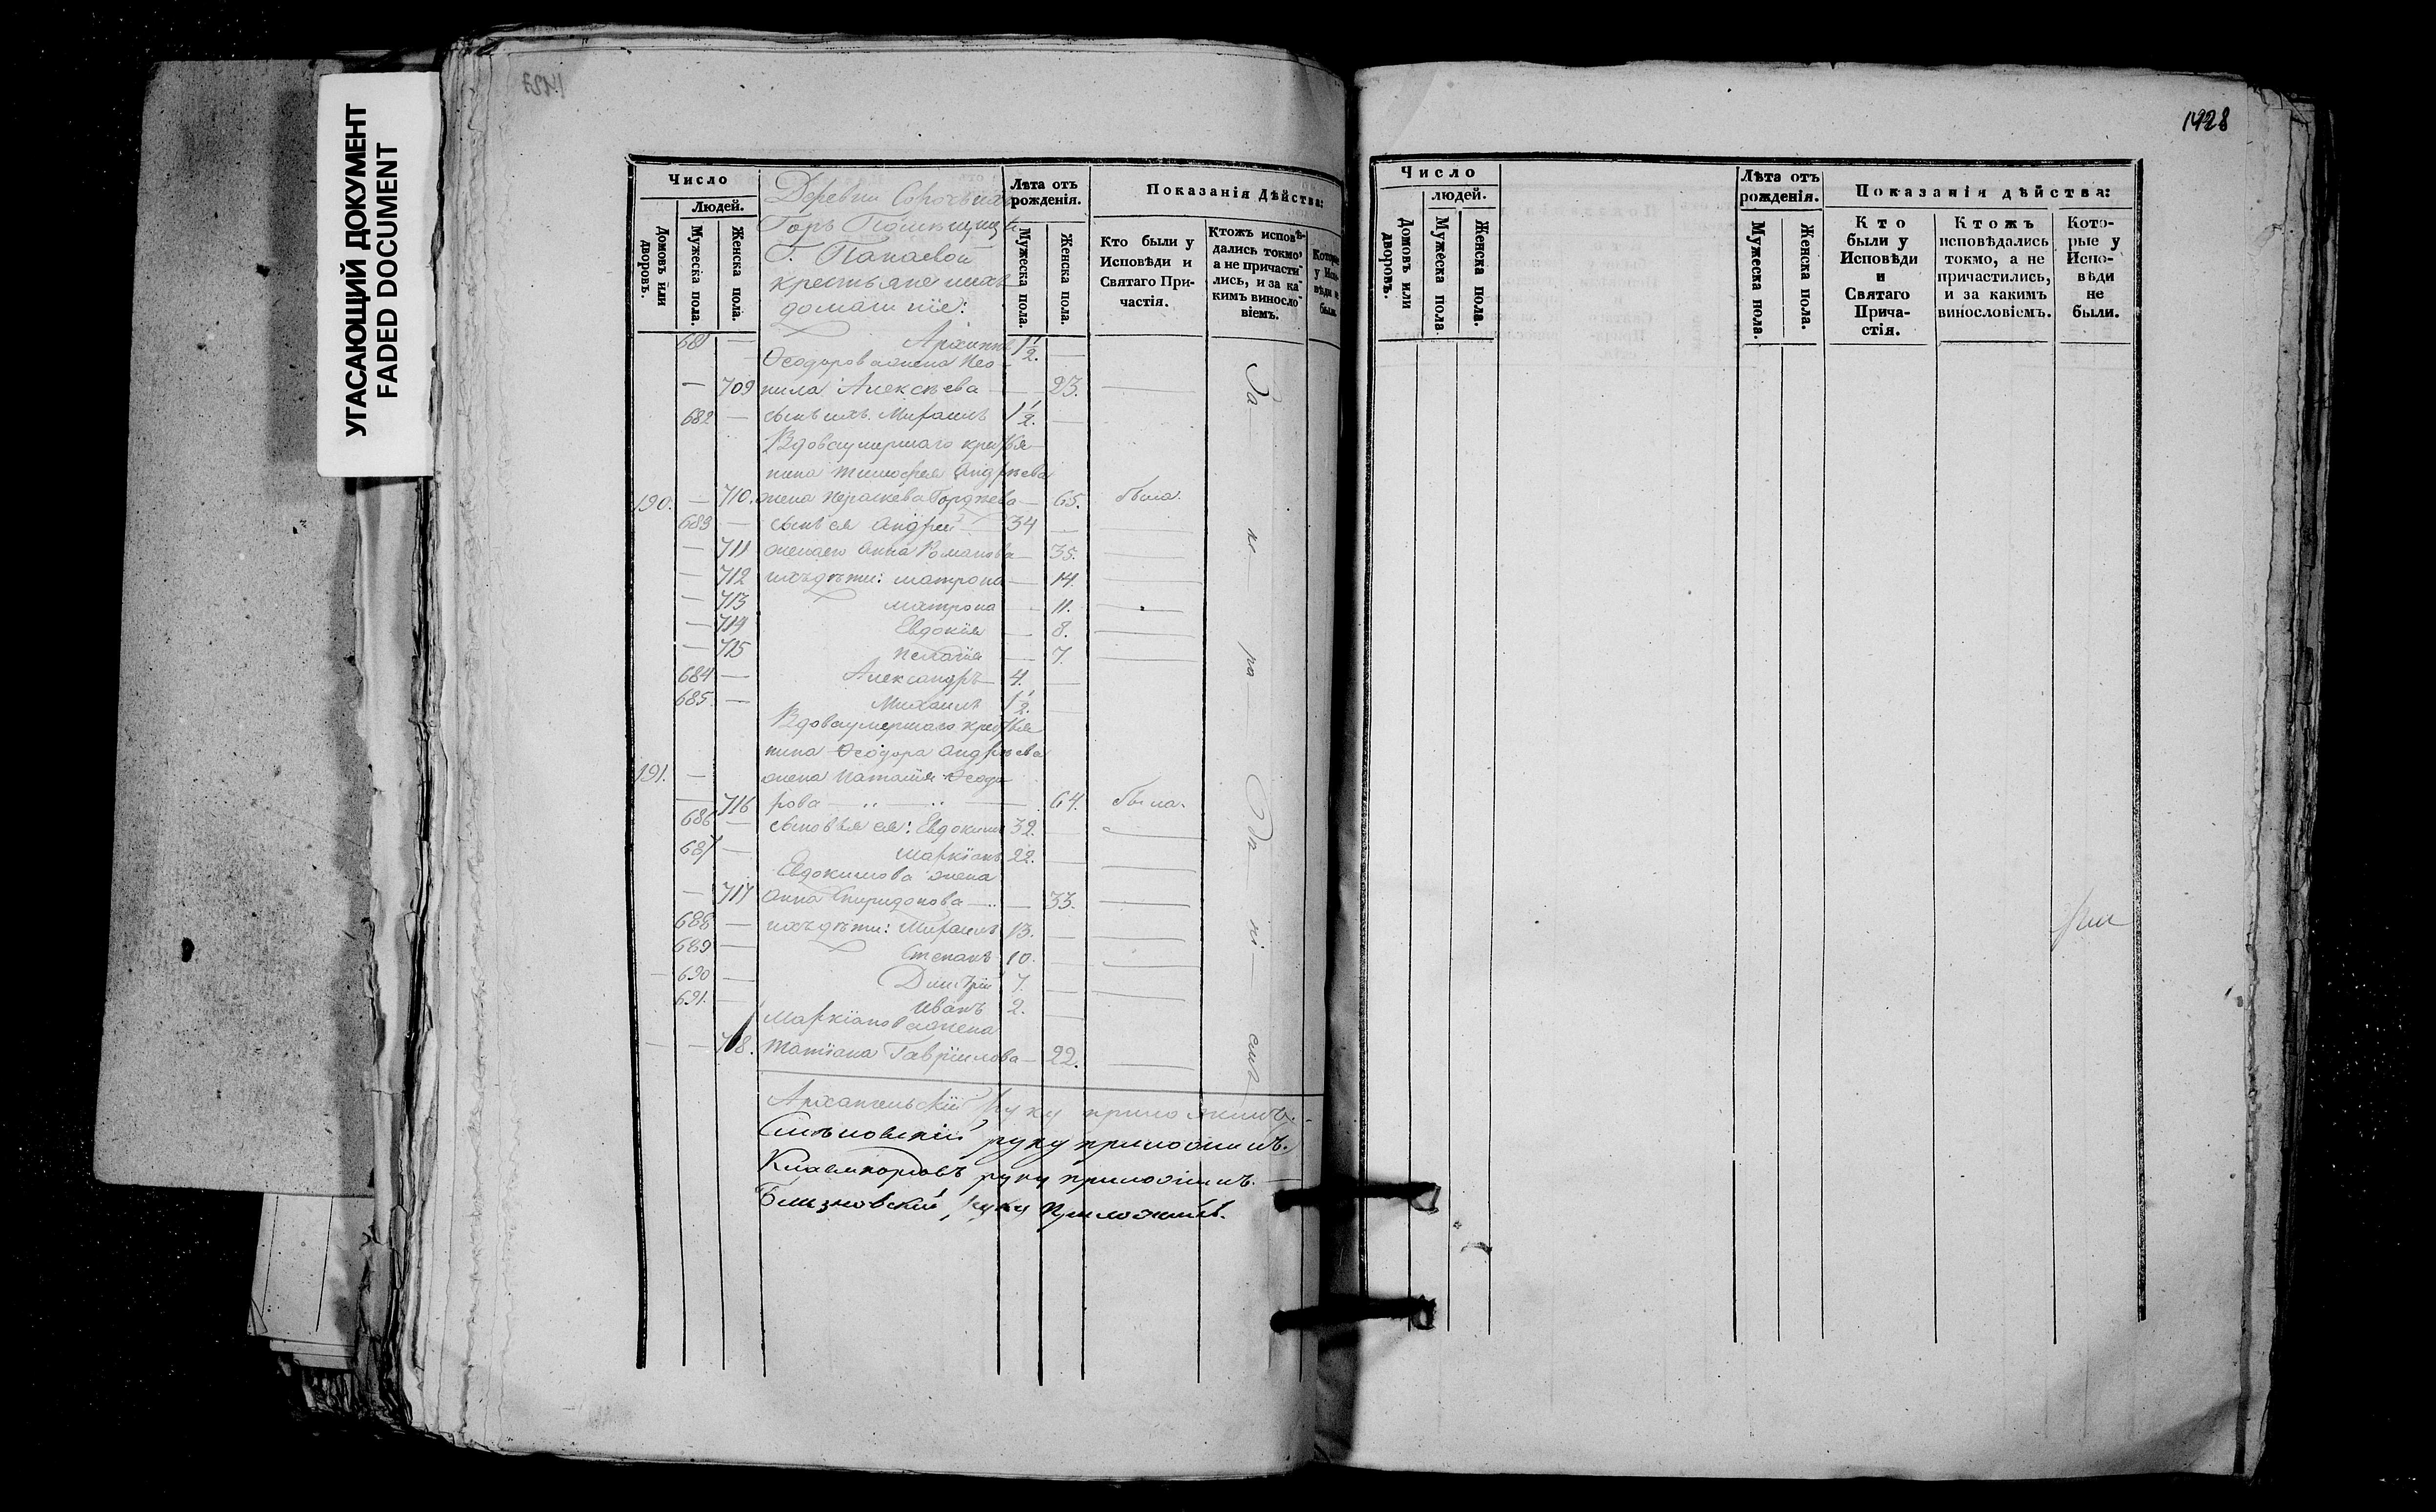 УГАСАЮЩИЙ ДОКУМЕНТ
FADED DOCUMENT
1427
Число
Людей.
Домовъ или дворовъ.
Мужеска пола.
Женска пола.
Деревни
Горъ Помѣщицы
Г. Панаевой
крестьяне и ихъ
домашніе:
Лѣта отъ рожденія.
Мужеска пола.
Женска пола.
Показанія Дѣйства:
Кто были у Исповѣди и Святаго Причастія.
Ктожъ исповѣдались токмо, а не причастились, и за какимъ винословіемъ.
Которые у Исповѣди не были.
681 — Архиппъ 1 1/2. —
Ѳеодорова жена Нео-
— 709 нила Алексѣева — 23. —
682 — сынъ ихъ Михаилъ 1 1/2. —
Вдова умершаго крестья-
нина Тимоѳея Андрѣева
190. — 710. жена Параскева — 65. была.
683 — сынъ ея Андрей 34 — —
— 711 жена его Анна Романова — 35. —
— 712 ихъ дѣти: Матрона — 14. —
— 713 Матрона — 11. —
— 714 Евдокія — 8. —
— 715 Пелагія — 7. —
684 — Александръ 4. —
685. — Михаилъ 1 1/2. —
Вдова умершаго крестья-
нина Ѳеодора Андрѣева
191. — жена Наталія Ѳеодо-
— 716 рова — 64. была.
686 — сыновья ея: Евдокимъ 32. — —
687 — Маркіанъ 22. — —
Евдокимова жена
— 717 Анна Спиридонова — 33. —
688 — ихъ дѣти: Михаилъ 13. — —
689 — Степанъ 10. — —
— 690 — Димитрій 7. — —
691. — Иванъ 2. —
Маркіанова жена
— — 718. Татіана Гавріилова — 22. —
Архангельскій руку приложилъ.
руку приложилъ.
руку приложилъ.
Близновскій руку приложилъ.
1428
Число
людей.
Домовъ или дворовъ.
Мужеска пола.
Женска пола.
Лѣта отъ рожденія.
Мужеска пола.
Женска пола.
Показанія дѣйства:
Кто были у Исповѣди и Святаго Причастія.
Ктожъ исповѣдались токмо, а не причастились, и за какимъ винословіемъ.
Которые у Исповѣди не были.